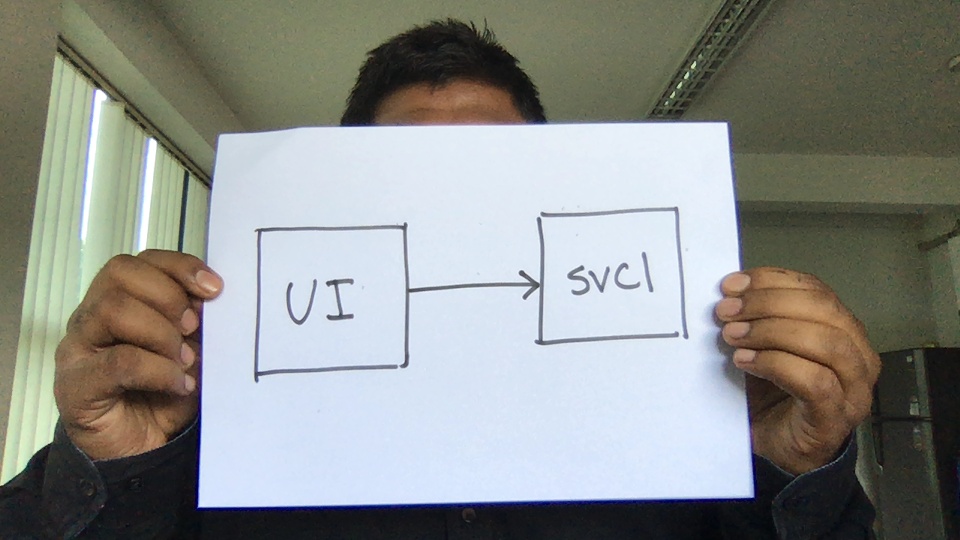 UI
svc1